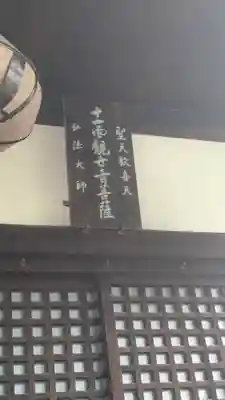 聖天歓喜天
十一面観世音菩薩
弘法大師